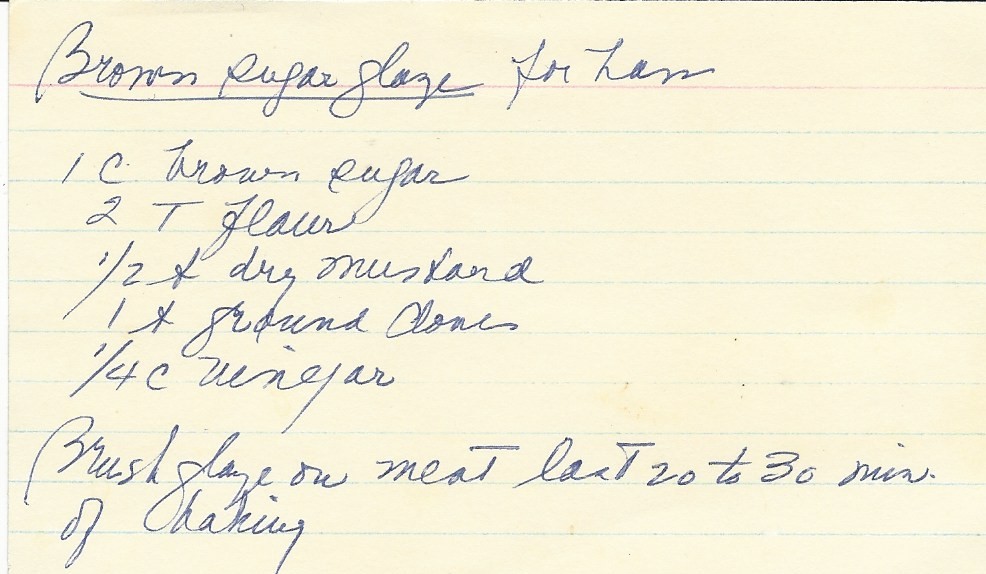 Brown sugar glaze for ham
1 C brown sugar
2 T flour
1/2 t dry mustard
1 t ground cloves
1/4 C vinegar
Brush glaze on meat last 20 to 30 min.
of baking